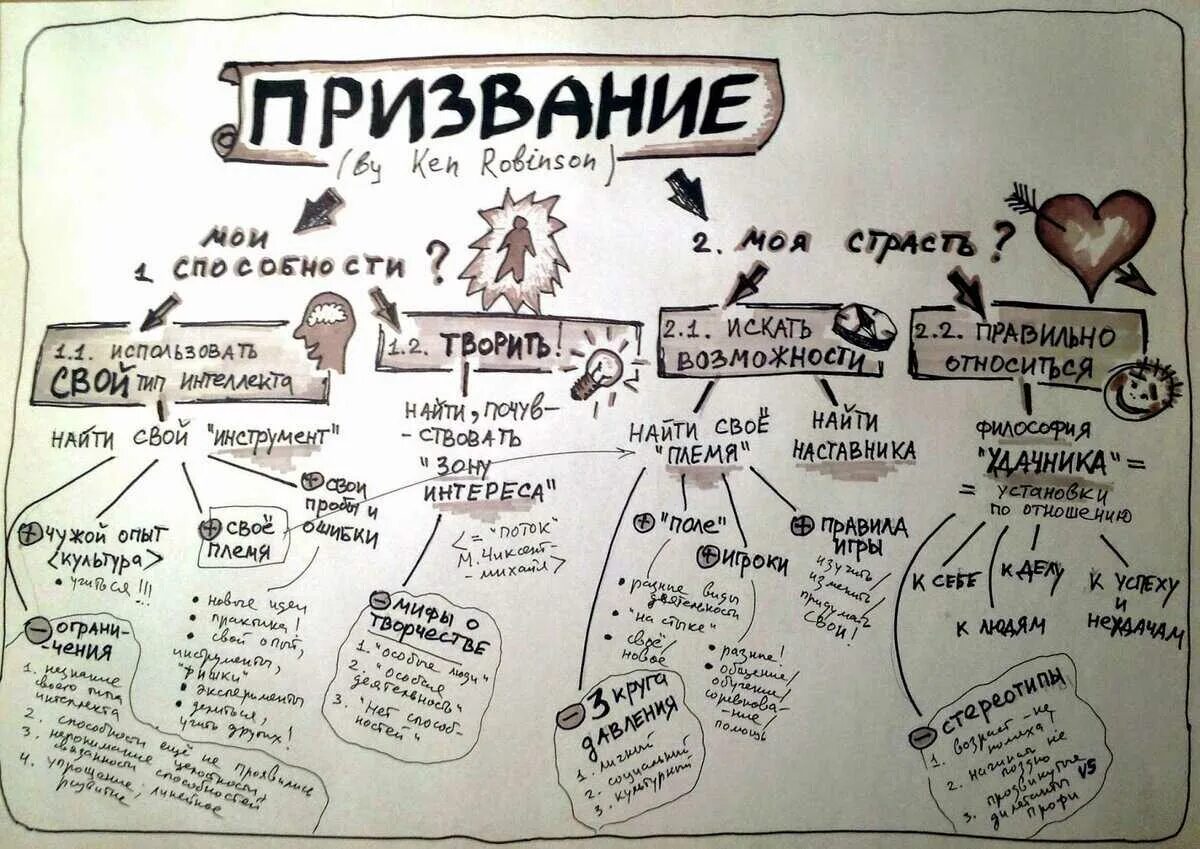 ПРИЗВАНИЕ
(By Ken Robinson)
МОИ
1 СПОСОБНОСТИ ?
2. МОЯ СТРАСТЬ ?
1.1. ИСПОЛЬЗОВАТЬ
СВОЙ ТИП ИНТЕЛЛЕКТА
НАЙТИ СВОЙ "ИНСТРУМЕНТ"
+ ЧУЖОЙ ОПЫТ
<КУЛЬТУРА>
• УЧИТЬСЯ!!!
+ СВОЁ
ПЛЕМЯ
• новые идеи
• практика!
• свой опыт,
инструменты,
"фишки"
• эксперименты
• делиться,
учить других!
+ СВОИ
ПРОБЫ И
ОШИБКИ
- ОГРАНИ-
-ЧЕНИЯ
1. незнание
своего типа
интеллекта
2. способности ещё не проявились
3. непонимание целостности,
связанности способностей
4. упрощение, линейное
развитие
1.2. ТВОРИТЬ!
НАЙТИ, ПОЧУВ-
-СТВОВАТЬ
"ЗОНУ
ИНТЕРЕСА"
<="ПОТОК"
М. Чиксент-
-михайл>
- МИФЫ О
ТВОРЧЕСТВЕ
1. "особые люди"
2. "особая
деятельность"
3. "нет способ-
ностей"
2.1. ИСКАТЬ
ВОЗМОЖНОСТИ
НАЙТИ СВОЁ
"ПЛЕМЯ"
НАЙТИ
НАСТАВНИКА
+ "ПОЛЕ"
• разные виды
деятельности
• "на стыке"
• своё/
новое
+ ИГРОКИ
• разные!
• общение/
обучение/
соревнова-
-ние/
помощь
+ ПРАВИЛА
ИГРЫ
изучить/
изменить/
придумать
СВОИ!
- 3 КРУГА
ДАВЛЕНИЯ
1. личный
2. социальный
3. культурный
2.2. ПРАВИЛЬНО
ОТНОСИТЬСЯ
ФИЛОСОФИЯ
"УДАЧНИКА" =
= УСТАНОВКИ
ПО ОТНОШЕНИЮ
К СЕБЕ
К ЛЮДЯМ
К ДЕЛУ
К УСПЕХУ
И
НЕУДАЧАМ
- СТЕРЕОТИПЫ
1. возраст - не
помеха!
2. начинать не
поздно
3. продвинутые
дилетанты VS
профи